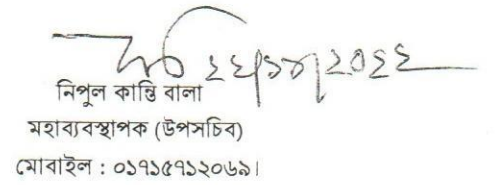 নিপুল কান্তি বালা
মহাব্যবস্থাপক (উপসচিব)
মোবাইল : ০১৭১৫৭১২০৬৯।